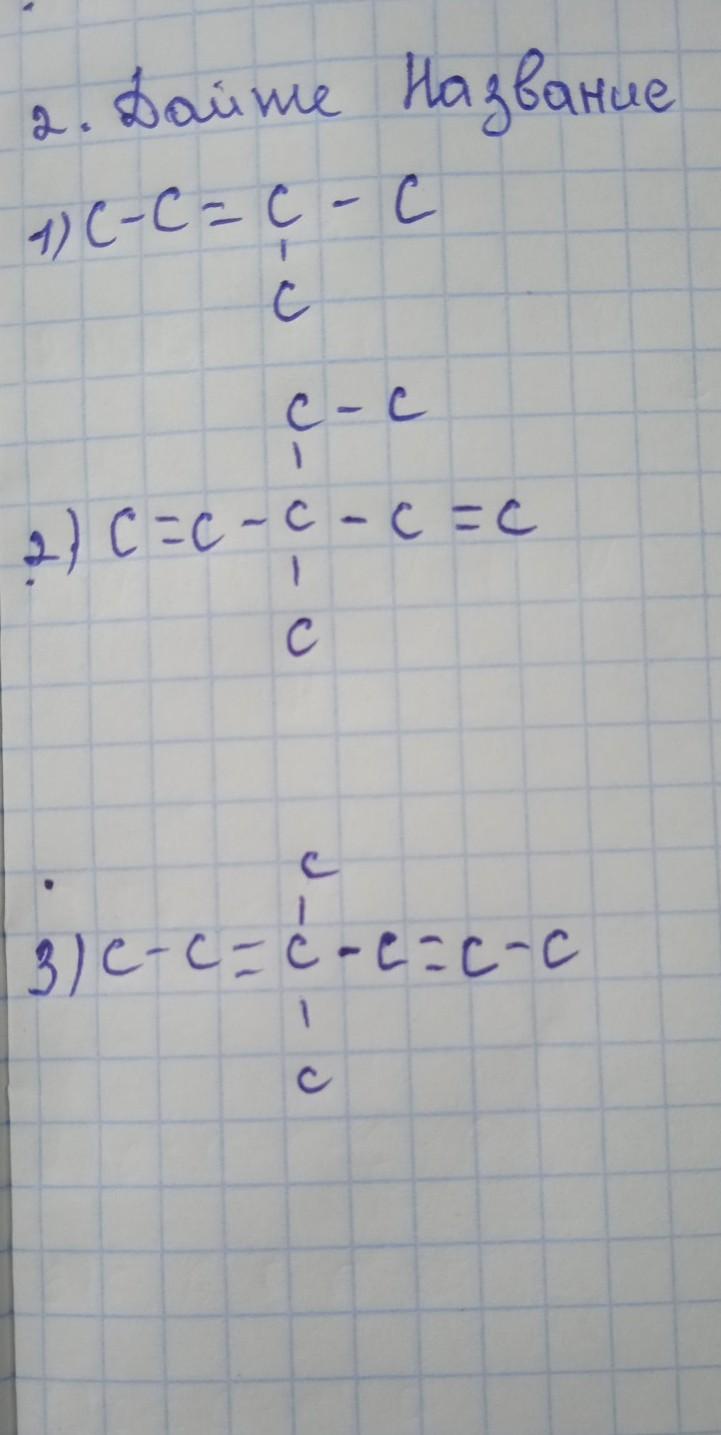 2. Дайте Название
1) C-C=C-C
C
C-C
2) C=C-C-C=C
C
C
3) C-C=C-C=C-C
C